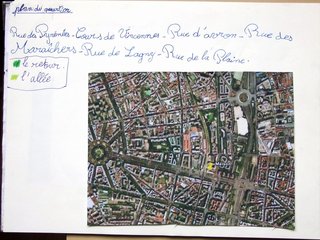 plan du quartier
Rue des Pyrénées - Cours de Vincennes - Rue d'avron - Rue des
Maraîchers - Rue de Lagny - Rue de la Plaine.
le retour
l'allée